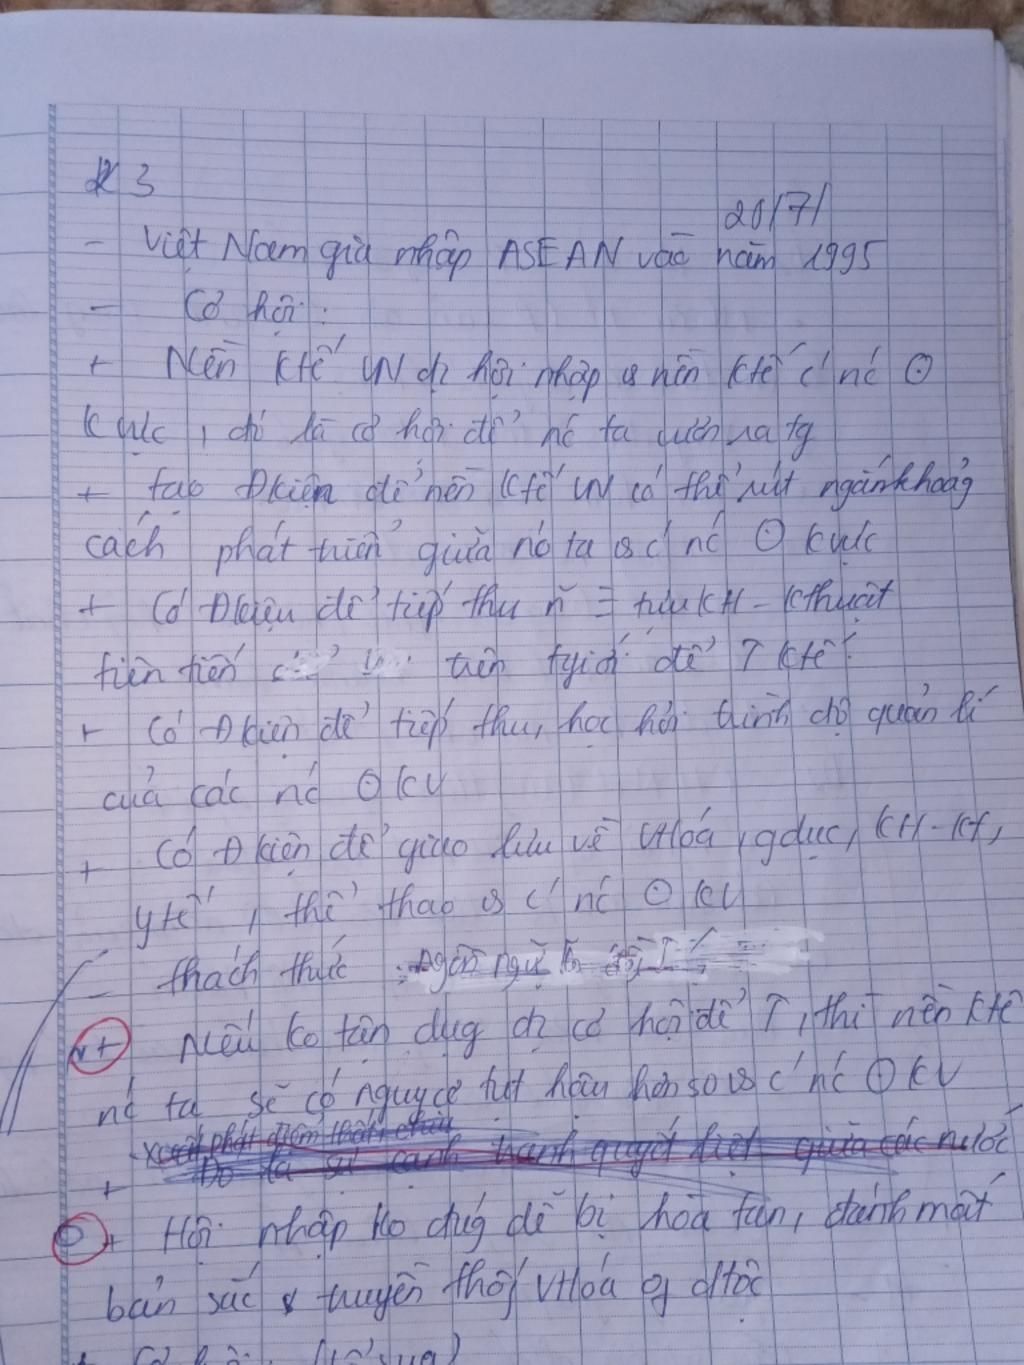 3
28/7/
- Việt Nam gia nhập ASEAN vào năm 1995
- Cơ hội:
+ Nền ktế VN đc hội nhập vs nền ktế c' nc' ⊙
kvực, đó là cơ hội để nc' ta vươn ra tg
+ tạo Đkiện để nền ktế VN có thể rút ngắn khoảg
cách phát triển giữa nc' ta vs c' nc' ⊙ kvực
+ Có Đkiện để tiếp thu ~ tựu KH - kthuật
tiên tiến trên tgiới để ↑ ktế.
+ Có Đkiện để tiếp thu, học hỏi trình độ quản lí
của các nc' ⊙ KV
+ Có Đkiện để giao lưu về VHoá, gdục, KH-KT,
y tế, thể thao vs c' nc' ⊙ KV
- thách thức :
+ Nếu ko tận dụg đc cơ hội để ↑, thì nền ktế
nc' ta sẽ có nguy cơ tụt hậu hơn so vs c' nc' ⊙ KV
xuất phát điểm thấp
+ Đó là sự cạnh tranh quyết liệt giữa các nước
+ Hội nhập ko đúg dễ bị hòa tan, đánh mất
bản sắc & truyền thốg VHoá of dtộc